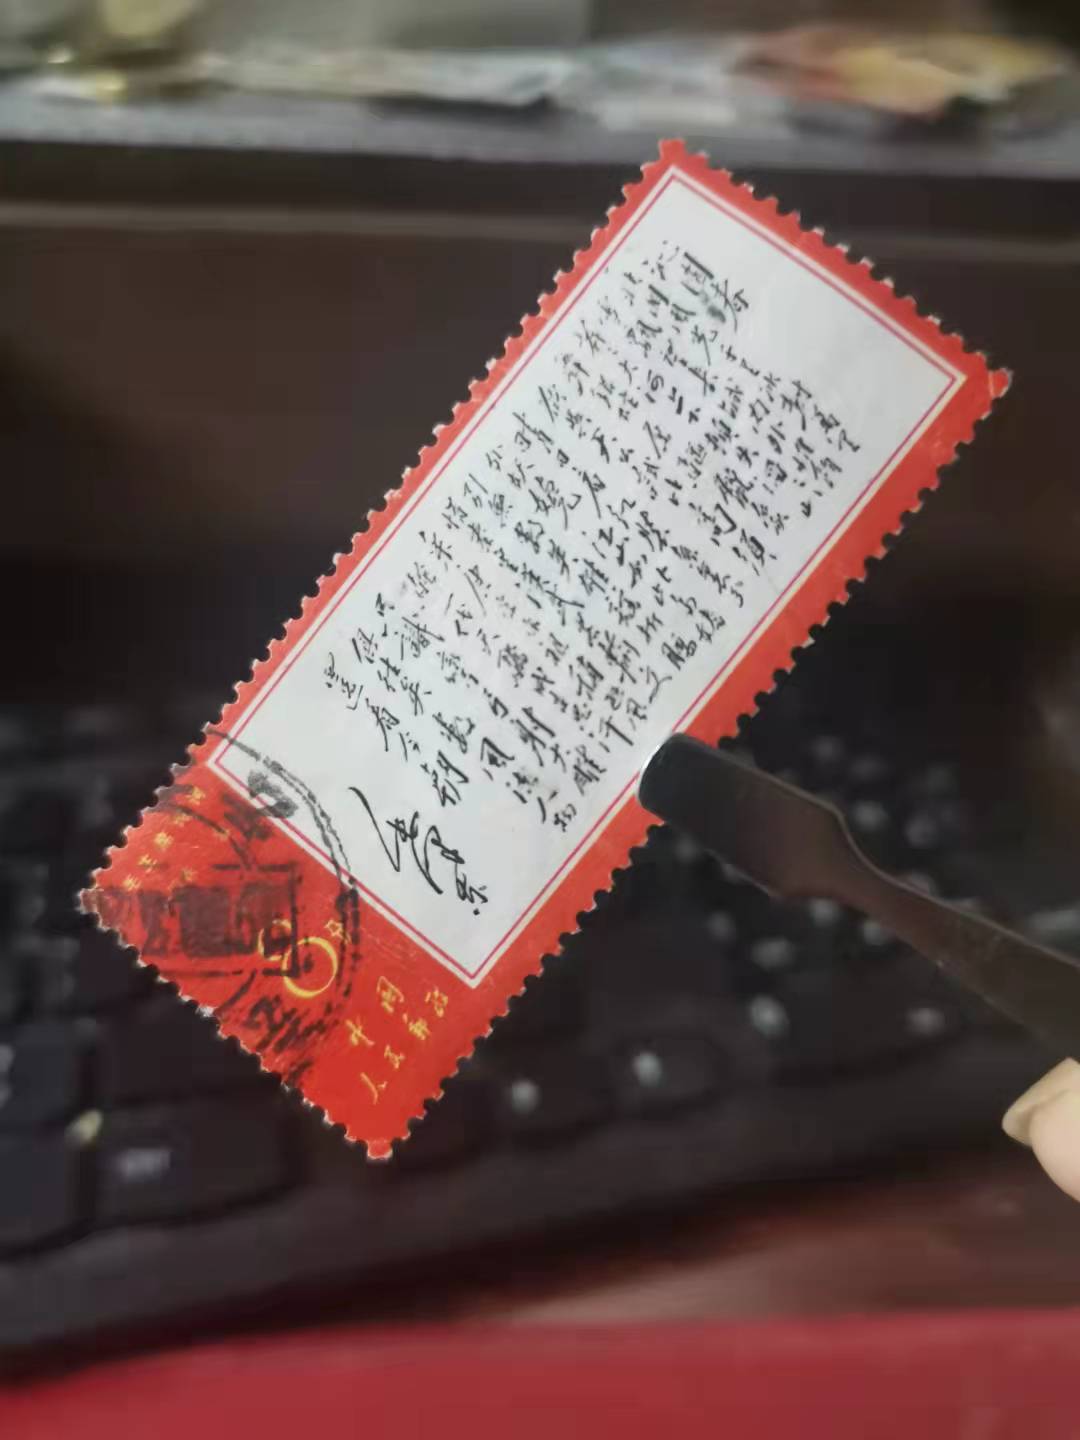 沁园春
北国风光 千里冰封
万里雪飘 望长城内外
惟余莽莽 大河上下
顿失滔滔 山舞银蛇
原驰蜡象 欲与天公试比高
须晴日 看红装素裹
分外妖娆 江山如此多娇
引无数英雄竞折腰
惜秦皇汉武 略输文采
唐宗宋祖 稍逊风骚
一代天骄 成吉思汗
只识弯弓射大雕
俱往矣 数风流人物
还看今朝
毛泽东
8分
中国
人民邮政